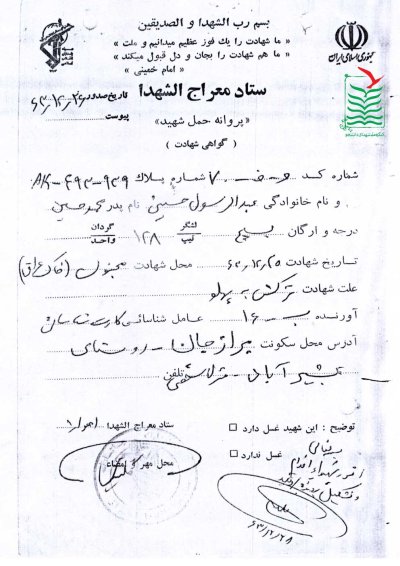 بسم رب الشهدا و الصدیقین
« ما شهادت را یك فوز عظیم میدانیم و ملت »
« ما هم شهادت را بجان و دل قبول میکند »
« امام خمینی »
جمهوری اسلامی ایران
ستاد معراج الشهدا
تاریخ صدور ۶۳/۱۲/۲۶
پیوست
«پروانه حمل شهید»
( گواهی شهادت )
شماره کد شماره پلاك ۹۳۹-۴۹۳-AK
و نام خانوادگی عبدالرسول حسینی نام پدر محمدحسین
درجه و ارگان بسیج لشگر تیپ ۱۲۸ گردان واحد
تاریخ شهادت ۶۳/۱۲/۲۵ محل شهادت مجنون
علت شهادت ترکش به پهلو
آورنده ب-۱۶ عامل شناسائی کارت شناسائی
آدرس محل سکونت برازجان - روستای
بشیرآباد - منزل شخصی تلفن
توضیح : این شهید غسل دارد
غسل ندارد
ستاد معراج الشهدا اهواز
محل مهر و امضاء